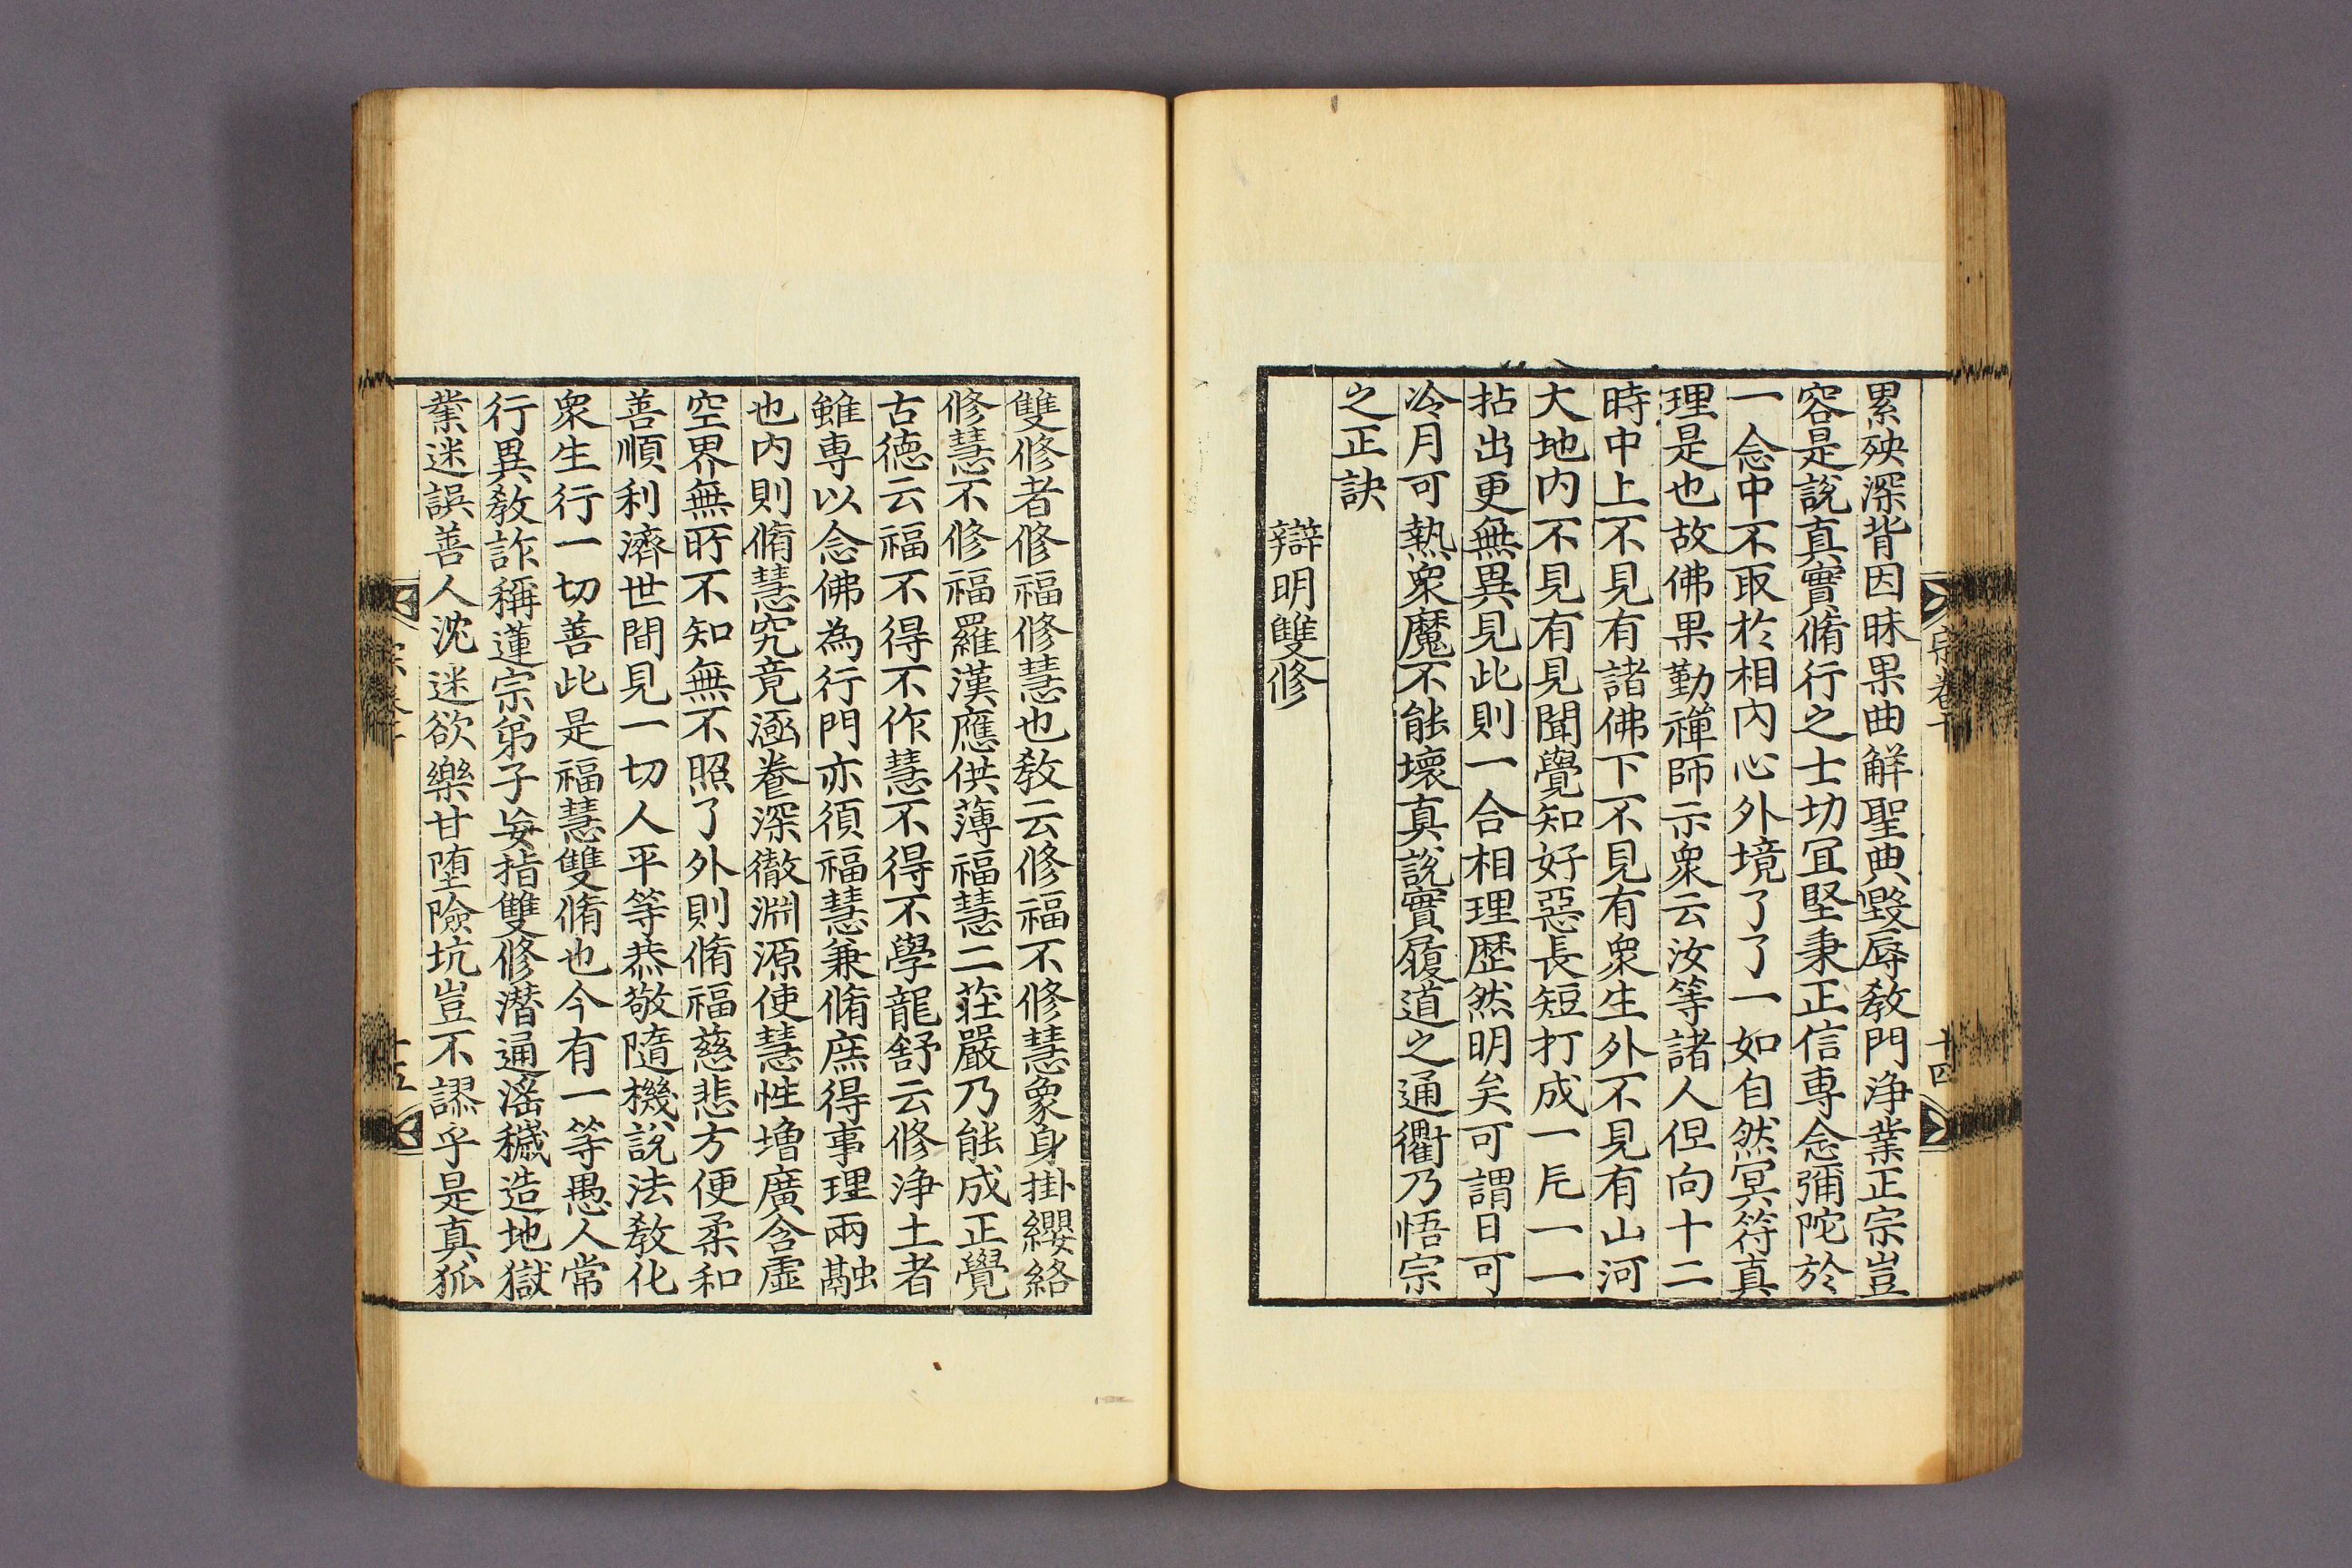 累殃深背因昧果曲解聖典毀辱教門浄業正宗豈
容是說真實脩行之士切冝堅秉正信専念彌陀於
一念中不取於相内心外境了了一如自然冥符真
理是也故佛果勤禪師示衆云汝等諸人但向十二
時中上不見有諸佛下不見有衆生外不見有山河
大地内不見有見聞覺知好惡長短打成一片一一
拈出更無異見此則一合相理歴然明矣可謂日可
冷月可熱衆魔不能壞真說實履道之通衢乃悟宗
之正訣
辯明雙修
宗卷十
十四
雙修者修福修慧也教云修福不修慧象身掛纓絡
修慧不修福羅漢應供薄福慧二莊嚴乃能成正覺
古德云福不得不作慧不得不學龍舒云修浄土者
雖専以念佛為行門亦須福慧兼脩庶得事理兩融
也内則脩慧究竟涵養深徹淵源使慧性增廣含虛
空界無所不知無不照了外則脩福慈悲方便柔和
善順利濟世間見一切人平等恭敬隨機說法教化
衆生行一切善此是福慧雙脩也今有一等愚人常
行異教詐稱蓮宗弟子妄指雙修潜通滛穢造地獄
業迷誤善人沈迷欲樂甘墮險坑豈不謬乎是真狐
宗卷十
十五